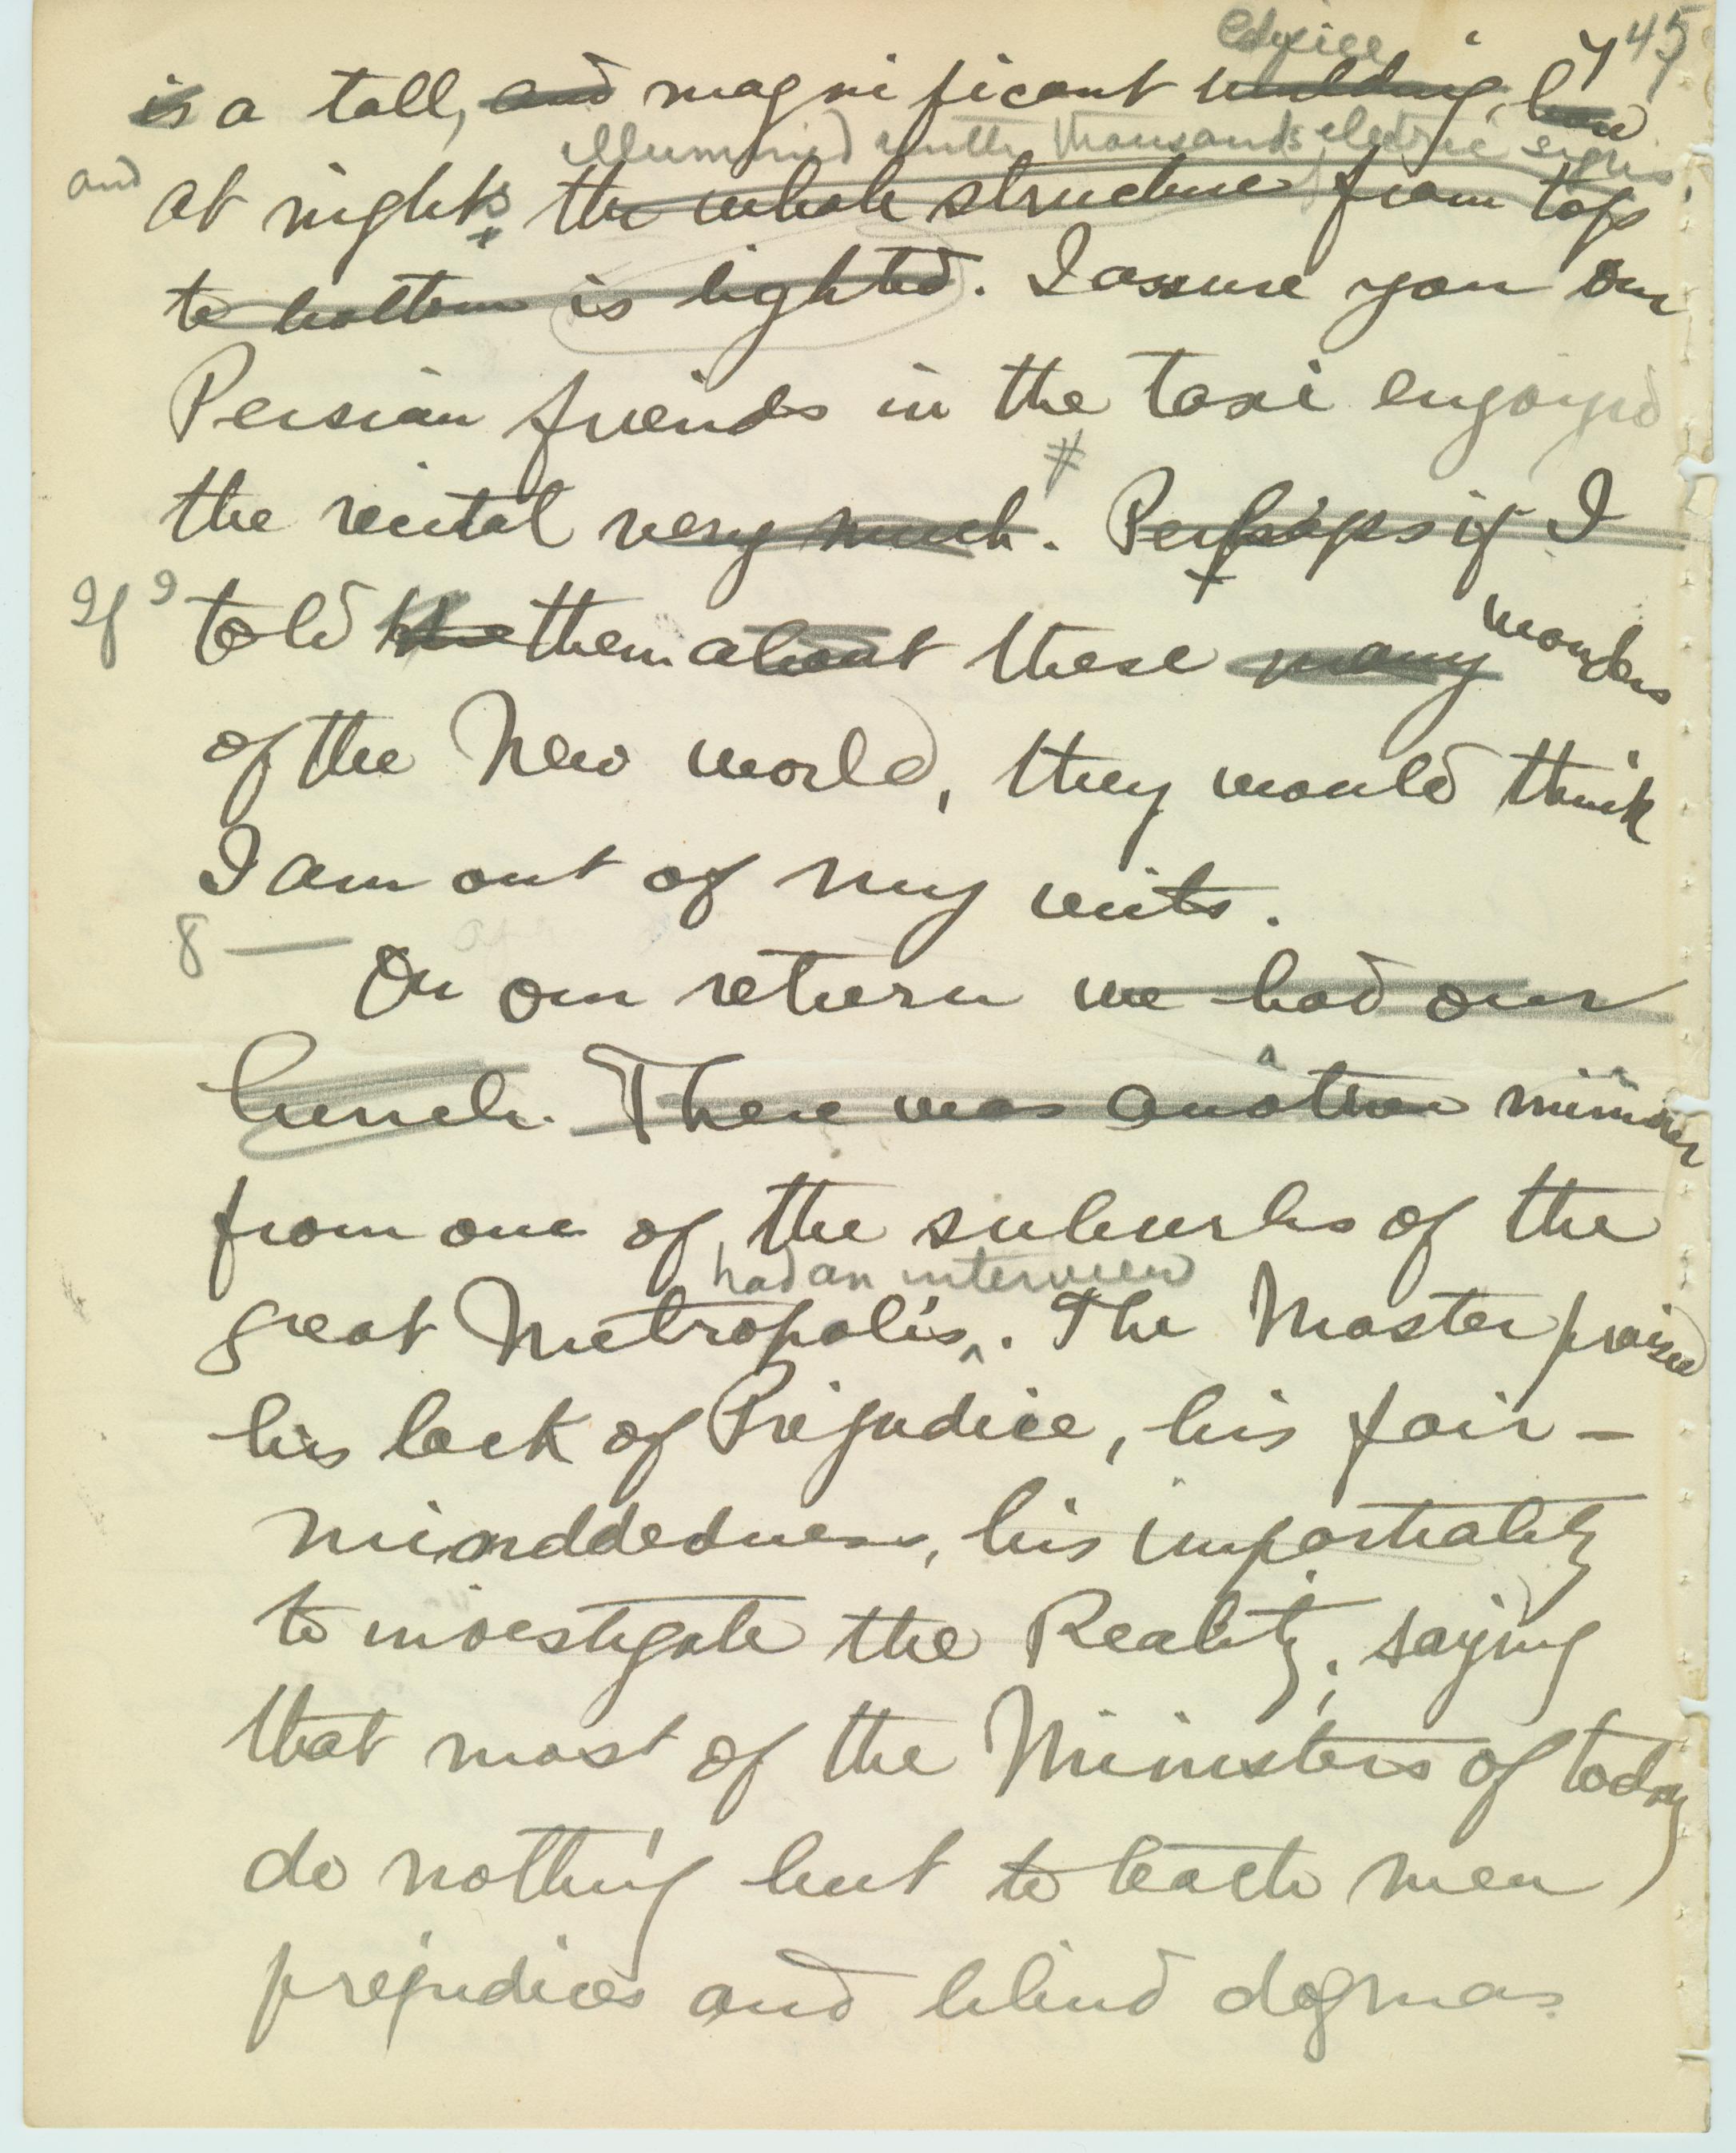 edifice 7 45
is a tall, and magnificent building,
illumined with thousands electric signs.
and at nights the whole structure from top
to bottom is lighted. I assure you our
Persian friends in the taxi enjoyed
the recital very much. # Perhaps if I
If I told the them about these many wonders
of the New world, they would think
I am out of my wits.
8 — On our return we had our
lunch. There was another minister
from one of the suburbs of the
had an interview
great Metropolis ^. The Master praised
his lack of Prejudice, his fair-
minddedness, his impartiality
to investigate the Reality; saying
that most of the Ministers of today
do nothing but to teach men
prejudices and blind dogmas